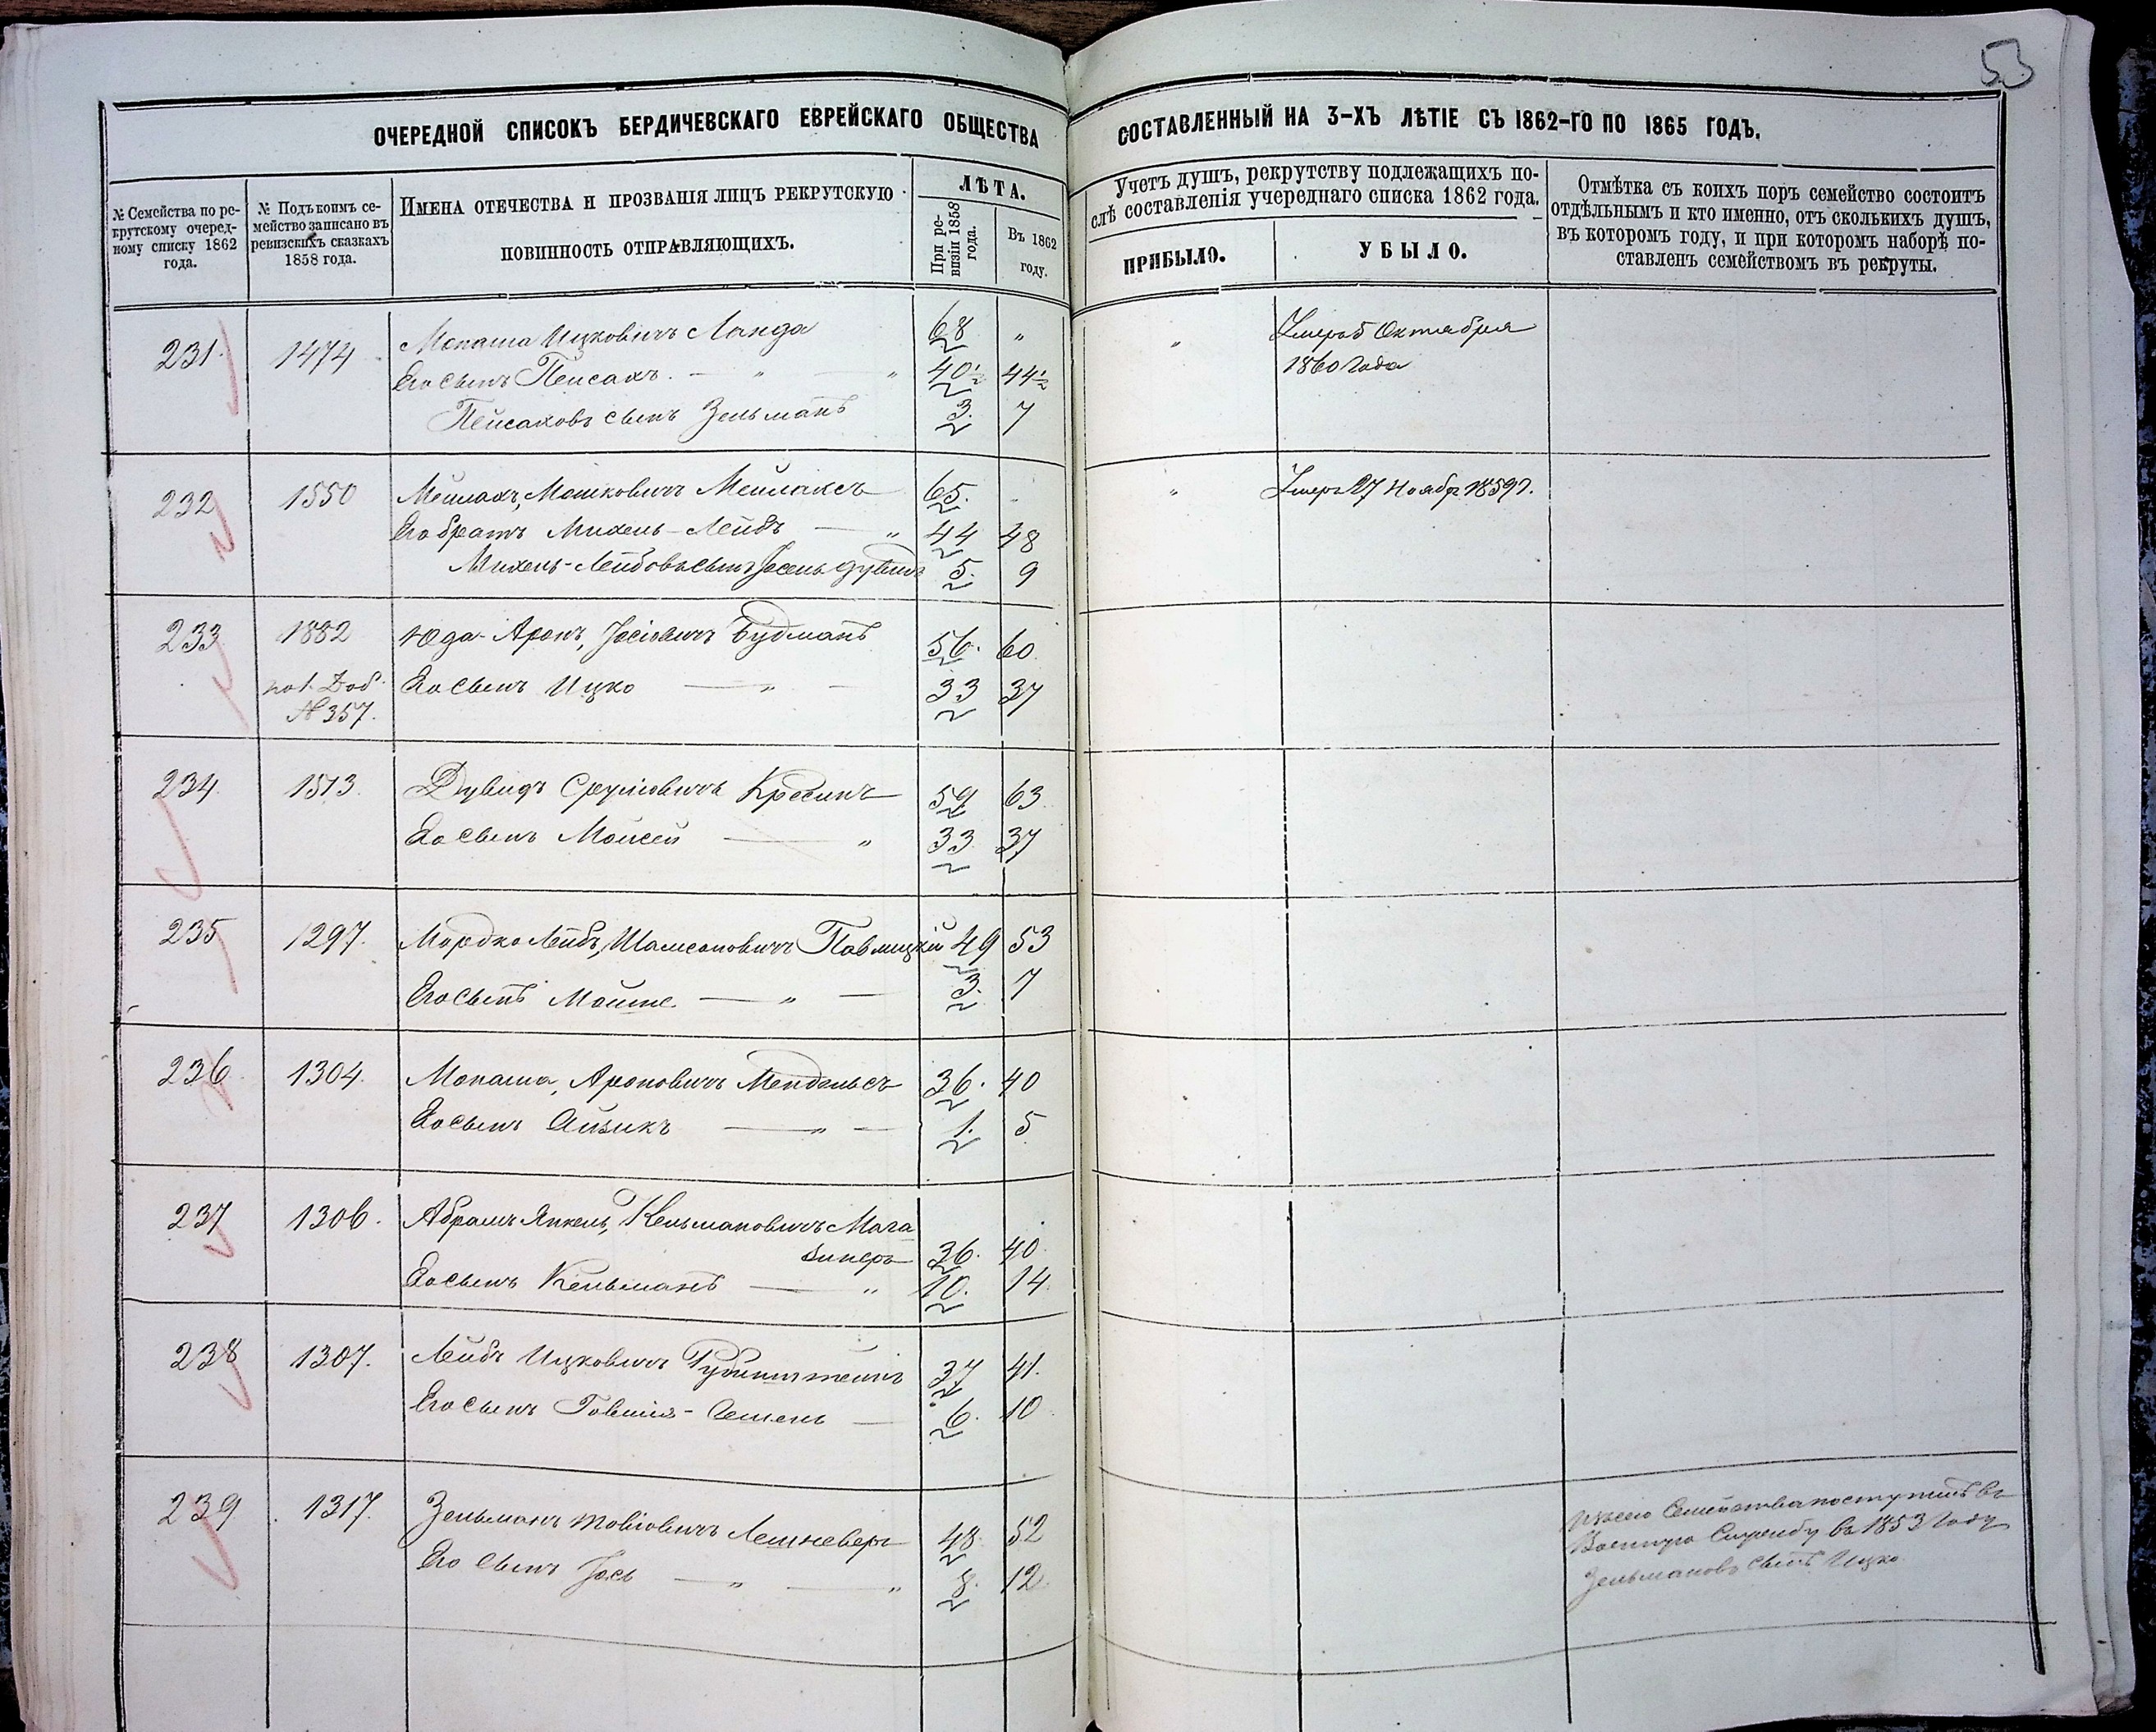 53
ОЧЕРЕДНОЙ СПИСОКЪ БЕРДИЧЕВСКАГО ЕВРЕЙСКАГО ОБЩЕСТВА СОСТАВЛЕННЫЙ НА 3-ХЪ ЛѢТІЕ СЪ 1862-ГО ПО 1865 ГОДЪ.
№ Семейства по ре-
крутскому очеред-
ному списку 1862
года.
№ Подъ коимъ се-
мейство записано въ
ревизскихъ сказкахъ
1858 года.
ИМЕНА ОТЕЧЕСТВА И ПРОЗВАНІЯ ЛИЦЪ РЕКРУТСКУЮ
ПОВИННОСТЬ ОТПРАВЛЯЮЩИХЪ.
ЛѢТА.
При ре-
визіи 1858
года.
Въ 1862
году.
Учетъ душъ, рекрутству подлежащихъ по-
слѣ составленія учереднаго списка 1862 года.
ПРИБЫЛО.
УБЫЛО.
Отмѣтка съ коихъ поръ семейство состоитъ
отдѣльнымъ и кто именно, отъ сколькихъ душъ,
въ которомъ году, и при которомъ наборѣ по-
ставленъ семействомъ въ рекруты.
231. 1474 Монаша Ицковичъ Ланда 68 " " Умеръ 5 Октября
Его сынъ Пейсахъ. — " — " 40½ 44½ 1860 года
Пейсаховъ сынъ Зельманъ 3. 7
232 1550 Мейлахъ, Мошковичъ Мейлаксъ 65. " Умеръ 27 Ноябр. 1859 г.
Его братъ Михель-Лейбъ — " 44 48
Михель-Лейбовъ сынъ Іосель Дувидъ 5. 9
233 1882 Юда-Аронъ, Іосіовичъ Будманъ 56. 60
по 1. Доб. Его сынъ Ицко — " — 33 37
№ 357.
234 1513. Дувидъ Сруліовичъ Кресинъ 59 63
Его сынъ Мойсей — " 33 37
235 1297. Мордко Лейбъ, Шамсоновичъ Павлицкій 49 53
Его сынъ Мойше. — " — 3. 7
236 1304. Монаша, Ароновичъ Мендельсъ 36. 40
Его сынъ Айзикъ — " — 1. 5
237 1306. Абрамъ Янкель, Кельмановичъ Мага
зинеръ 36. 40
Его сынъ Кельманъ — " 10. 14.
238 1307. Лейбъ Ицковичъ Рубинштейнъ 37 41.
Его сынъ — 6. 10
239 1317. Зельманъ Товіовичъ Лешневеръ 48. 52 Изъ сего Семейства поступилъ въ
Его сынъ Іось — " — " 8. 12. Военную Службу въ 1853 Году
Зельмановъ сынъ Ицко